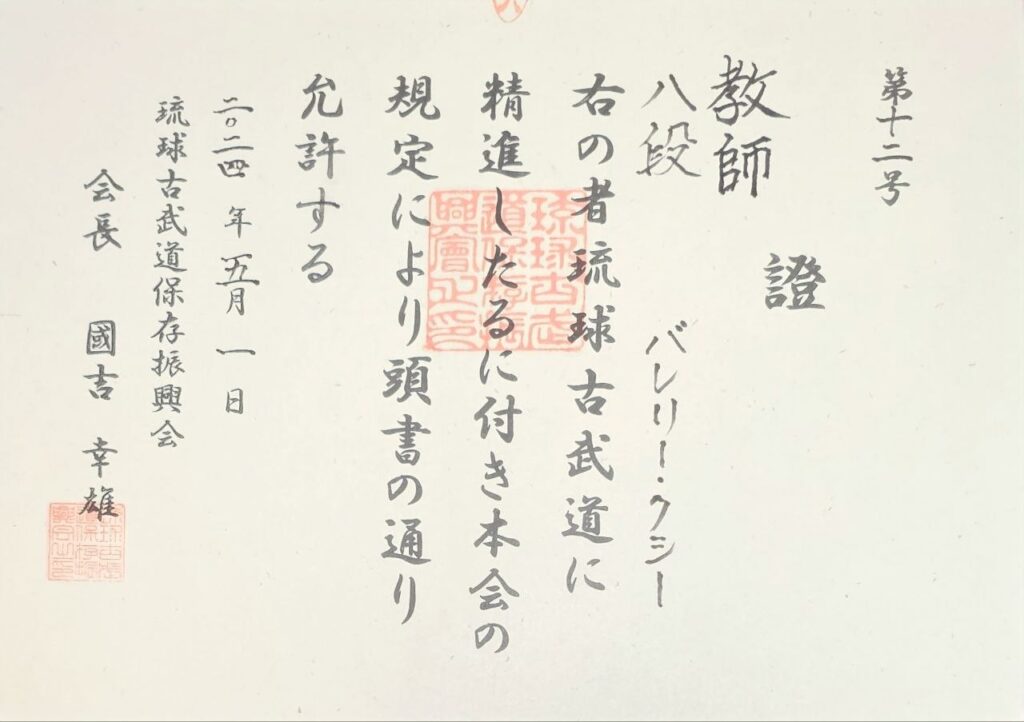 第十二号
證
教師
八段 バレリー・クシー
右の者琉球古武道に
精進したるに付き本会の
規定により頭書の通り
允許する
二〇二四年 五月 一日
琉球古武道保存振興会
会長 國吉 幸雄
琉球古武
道保存振
興會之印